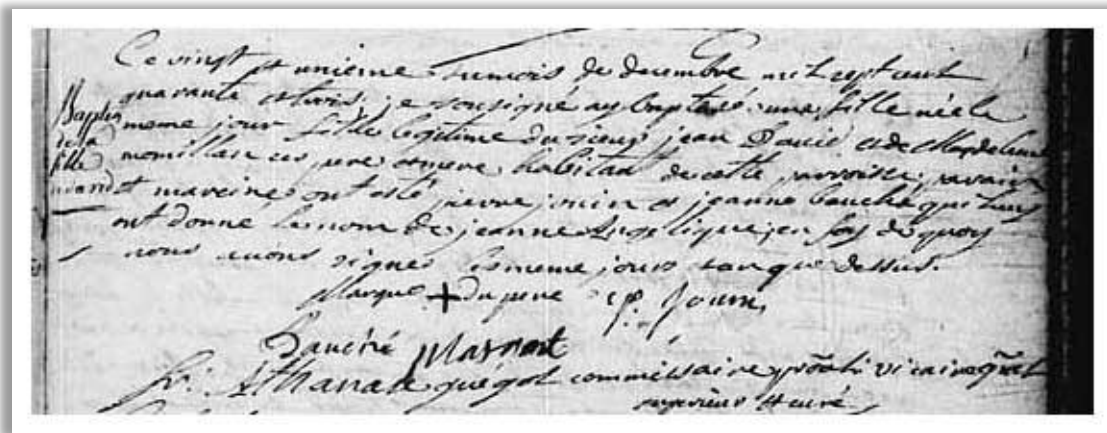 Ce vingt et unieme du mois de decembre mil sept cent
quarante et trois, je sousigné ay baptisé une fille née le
meme jour fille legitime du sieur jean David et de Magdelaine
momillan ses pere et mere habitant de cette parroisse; parain
et mareine ont esté pierre jouin et jeanne bauché qui luy
ont donné le nom de jeanne Angelique; en foy de quoy
nous avons signer les meme jours tan que dessus.
Marque + du pere p. Jouin
Bauché
fr. Athanase commissaire vicaire
superieur et curé
Baptem
de la
fille